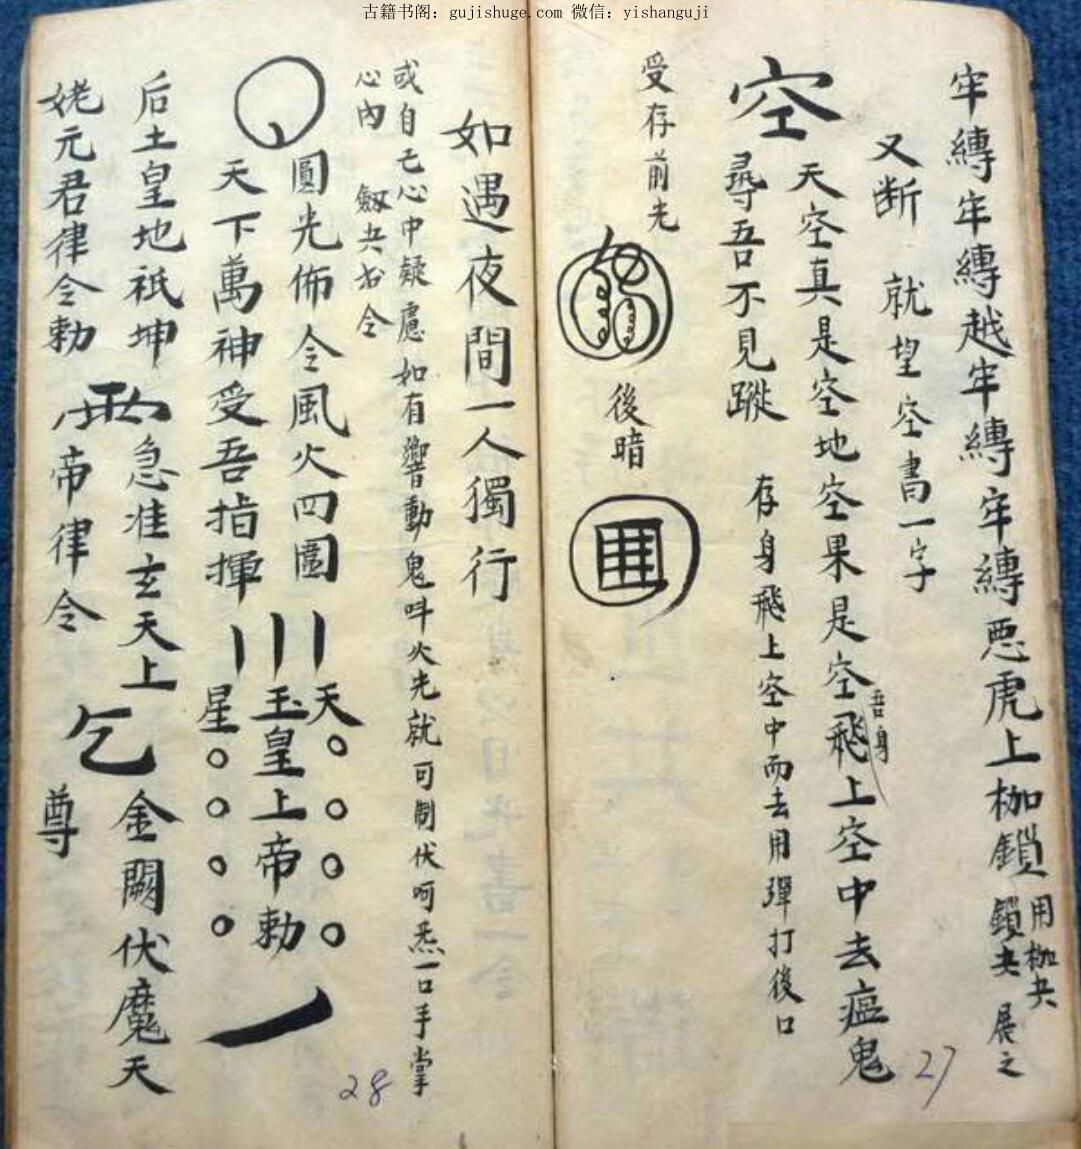 古籍书阁：gujishuge.com 微信：yishanguji
牢縛牢縛越牢縛牢縛悪虎上枷鎖
用枷夬
鎖夬 展之
又断 就望空書一字
空 天空真是空地空果是空飛上空中去瘟鬼
吾身
尋吾不見蹤
存身飛上空中而去用彈打後口
受存前光
後暗
如遇夜間一人獨行
或自己心中疑慮如有響動鬼呌火光就可制伏呵炁一口手掌
心內 劔夬书令
圓光佈令風火四圍 天
玉皇上帝勅
天下萬神受吾指揮 星
后土皇地祇坤 急准玄天上 金闕伏魔天
姥元君律令勅 帝律令 尊
27
28